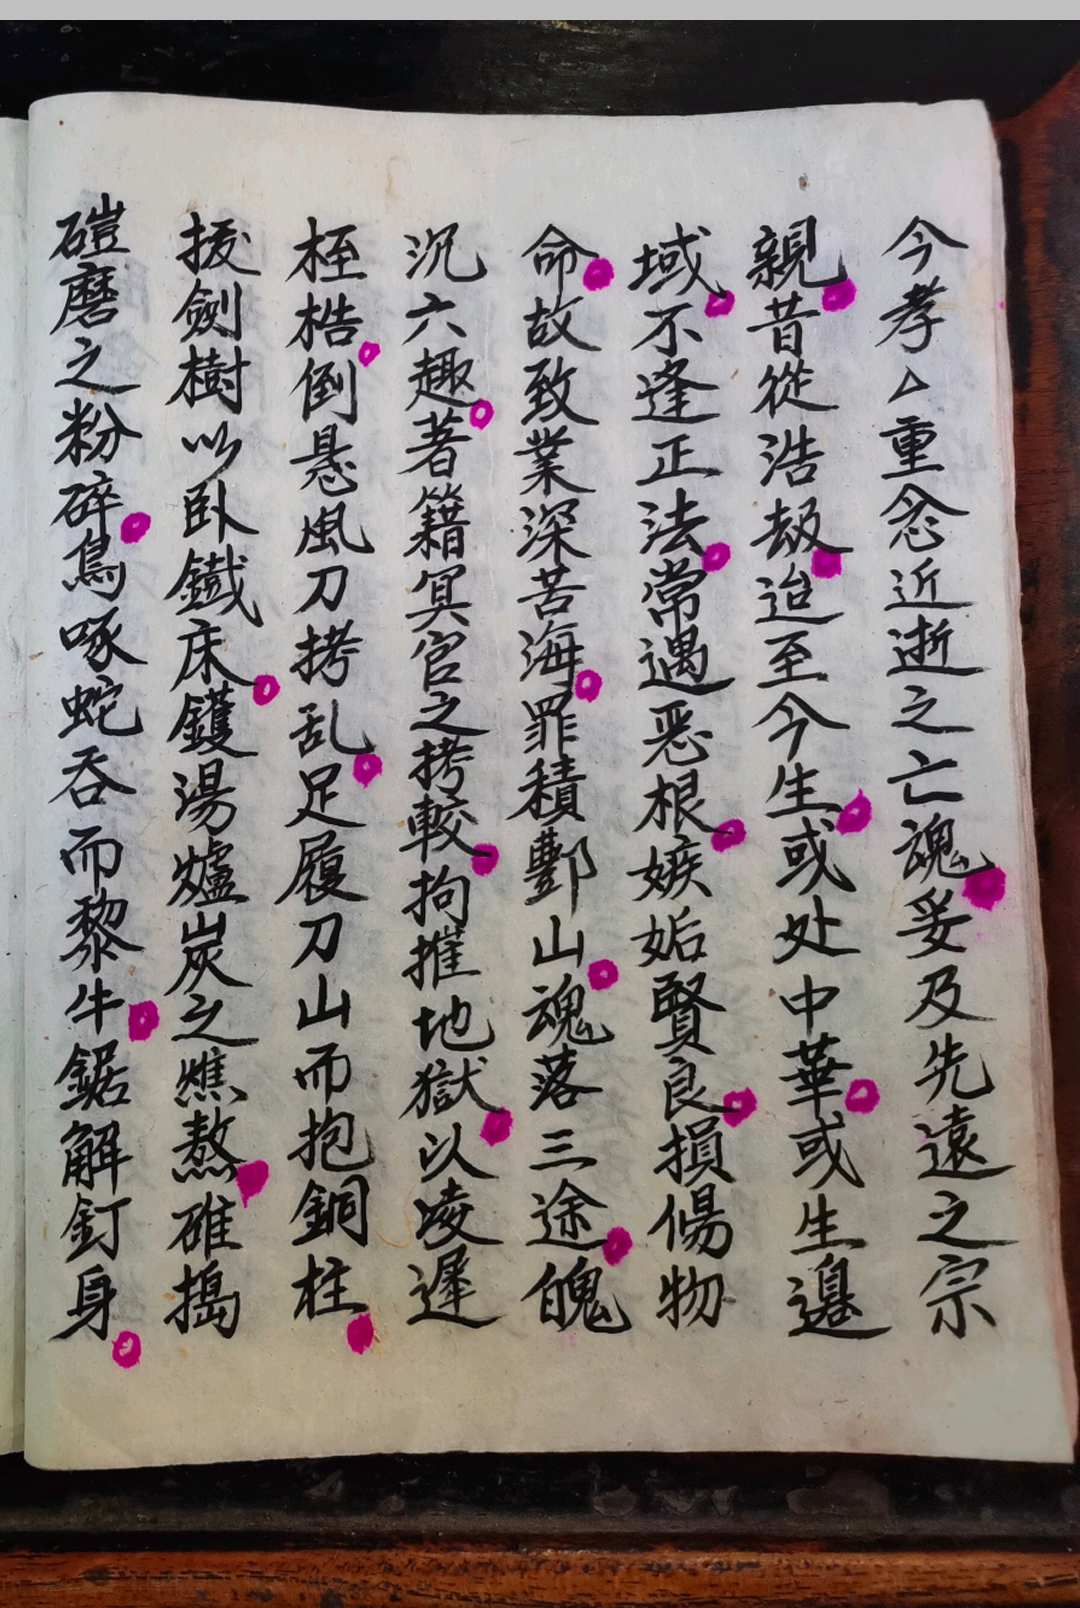 今孝厶重念近逝之亡魂妥及先遠之宗
親昔從浩劫迨至今生或处中華或生邊
域不逢正法常遇恶根嫉妬賢良損傷物
命故致業深苦海罪積酆山魂落三途魄
沉六趣著籍冥官之拷較拘摧地獄以凌遲
桎梏倒悬風刀拷乱足履刀山而抱銅柱
援劍樹以卧鐵床鑊湯爐炭之燋熬碓搗
磑磨之粉碎鳥啄蛇吞而黎牛鋸解釘身